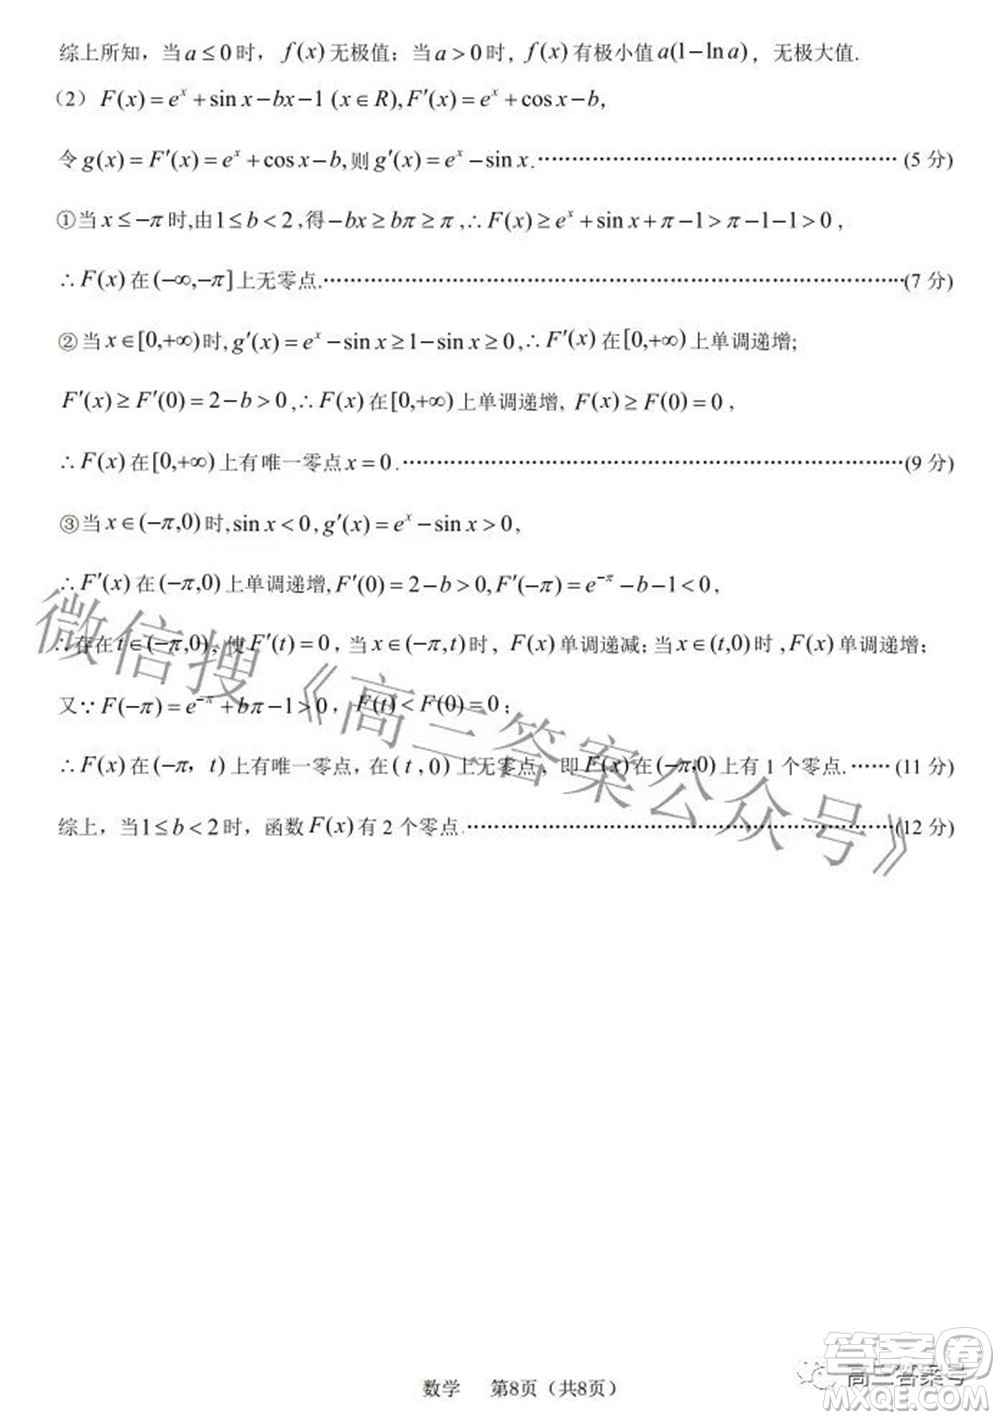 综上所知，当a≤0时，f(x)无极值；当a>0时，f(x)有极小值a(1−ln a)，无极大值.
（2）F(x)=eˣ+sin x−bx−1 (x∈R),F′(x)=eˣ+cos x−b,
令g(x)=F′(x)=eˣ+cos x−b,则g′(x)=eˣ−sin x.…………………………………………(5 分)
①当x≤−π时,由1≤b<2,得−bx≥bπ≥π,∴F(x)≥eˣ+sin x+π−1>π−1−1>0,
∴F(x)在(−∞,−π]上无零点.……………………………………………………………………(7 分)
②当x∈[0,+∞)时,g′(x)=eˣ−sin x≥1−sin x≥0,∴F′(x)在[0,+∞)上单调递增;
F′(x)≥F′(0)=2−b>0,∴F(x)在[0,+∞)上单调递增, F(x)≥F(0)=0,
∴F(x)在[0,+∞)上有唯一零点x=0.…………………………………………………………(9 分)
③当x∈(−π,0)时,sin x<0,g′(x)=eˣ−sin x>0,
∴F′(x)在(−π,0)上单调递增,F′(0)=2−b>0,F′(−π)=e^{−π}−b−1<0,
∴存在t∈(−π,0)，使F′(t)=0，当x∈(−π,t)时，F(x)单调递减;当x∈(t,0)时,F(x)单调递增;
又∵F(−π)=e^{−π}+bπ−1>0，F(t)<F(0)=0；
∴F(x)在(−π，t)上有唯一零点，在(t,0)上无零点，即F(x)在(−π,0)上有1个零点.……(11 分)
综上，当1≤b<2时，函数F(x)有2个零点.……………………………………………………(12 分)
微信搜《高三答案公众号》
答案圈
高三答案号
MXQE.COM
数学 第8页（共8页）